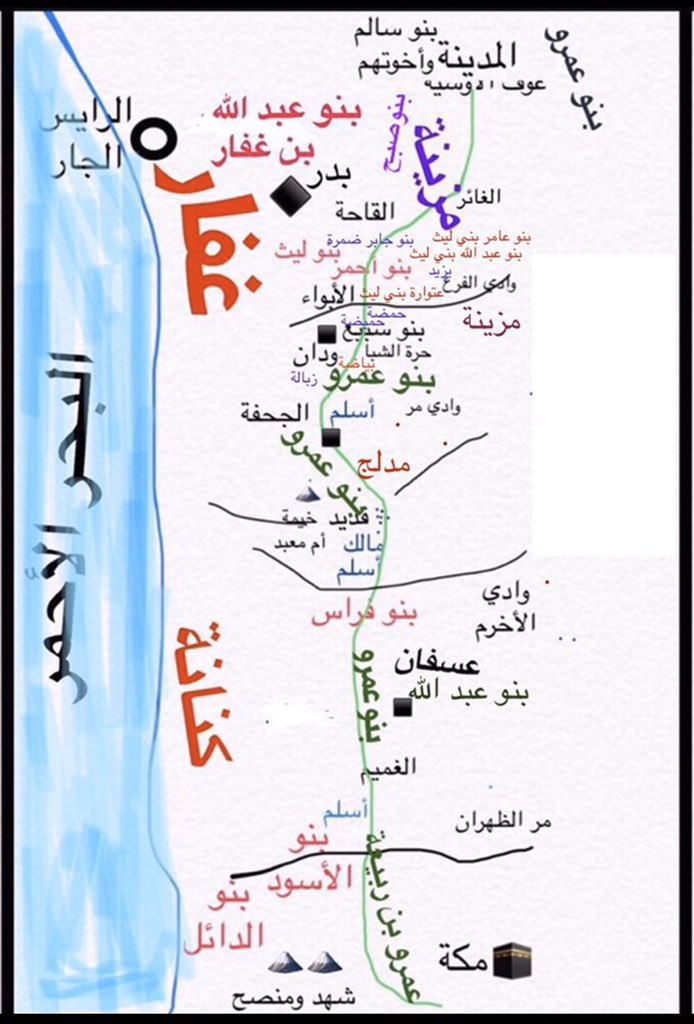 بنو سالم
وأخوتهم
المدينة
عوف الأوسية
بنو عمرو
الرايس
الجار
بنو عبد الله
بن غفار
بنو صبح
مزينة
بدر
غفار
القاحة
الغائر
بنو عامر بني ليث
بنو جابر ضمرة
بنو عبد الله بني ليث
بنو ليث
بنو احمر
يزيد
وادي الفرع
عتوارة بني ليث
الأبواء
حمضة
حميضة
مزينة
بنو سبيع
حرة الشبا
ودان
بياضة
بنو عمرو
زبالة
وادي مر
أسلم
الجحفة
بنو عمرو
مدلج
قديد
خيمة
أم معبد
مالك
أسلم
البحر الأحمر
وادي
الأخرم
بنو فراس
كنانة
عسفان
بنو عبد الله
بنو عمرو
الغميم
أسلم
مر الظهران
بنو
الأسود
بنو
الدائل
عمرو بن ربيعة
مكة
شهد ومنصح